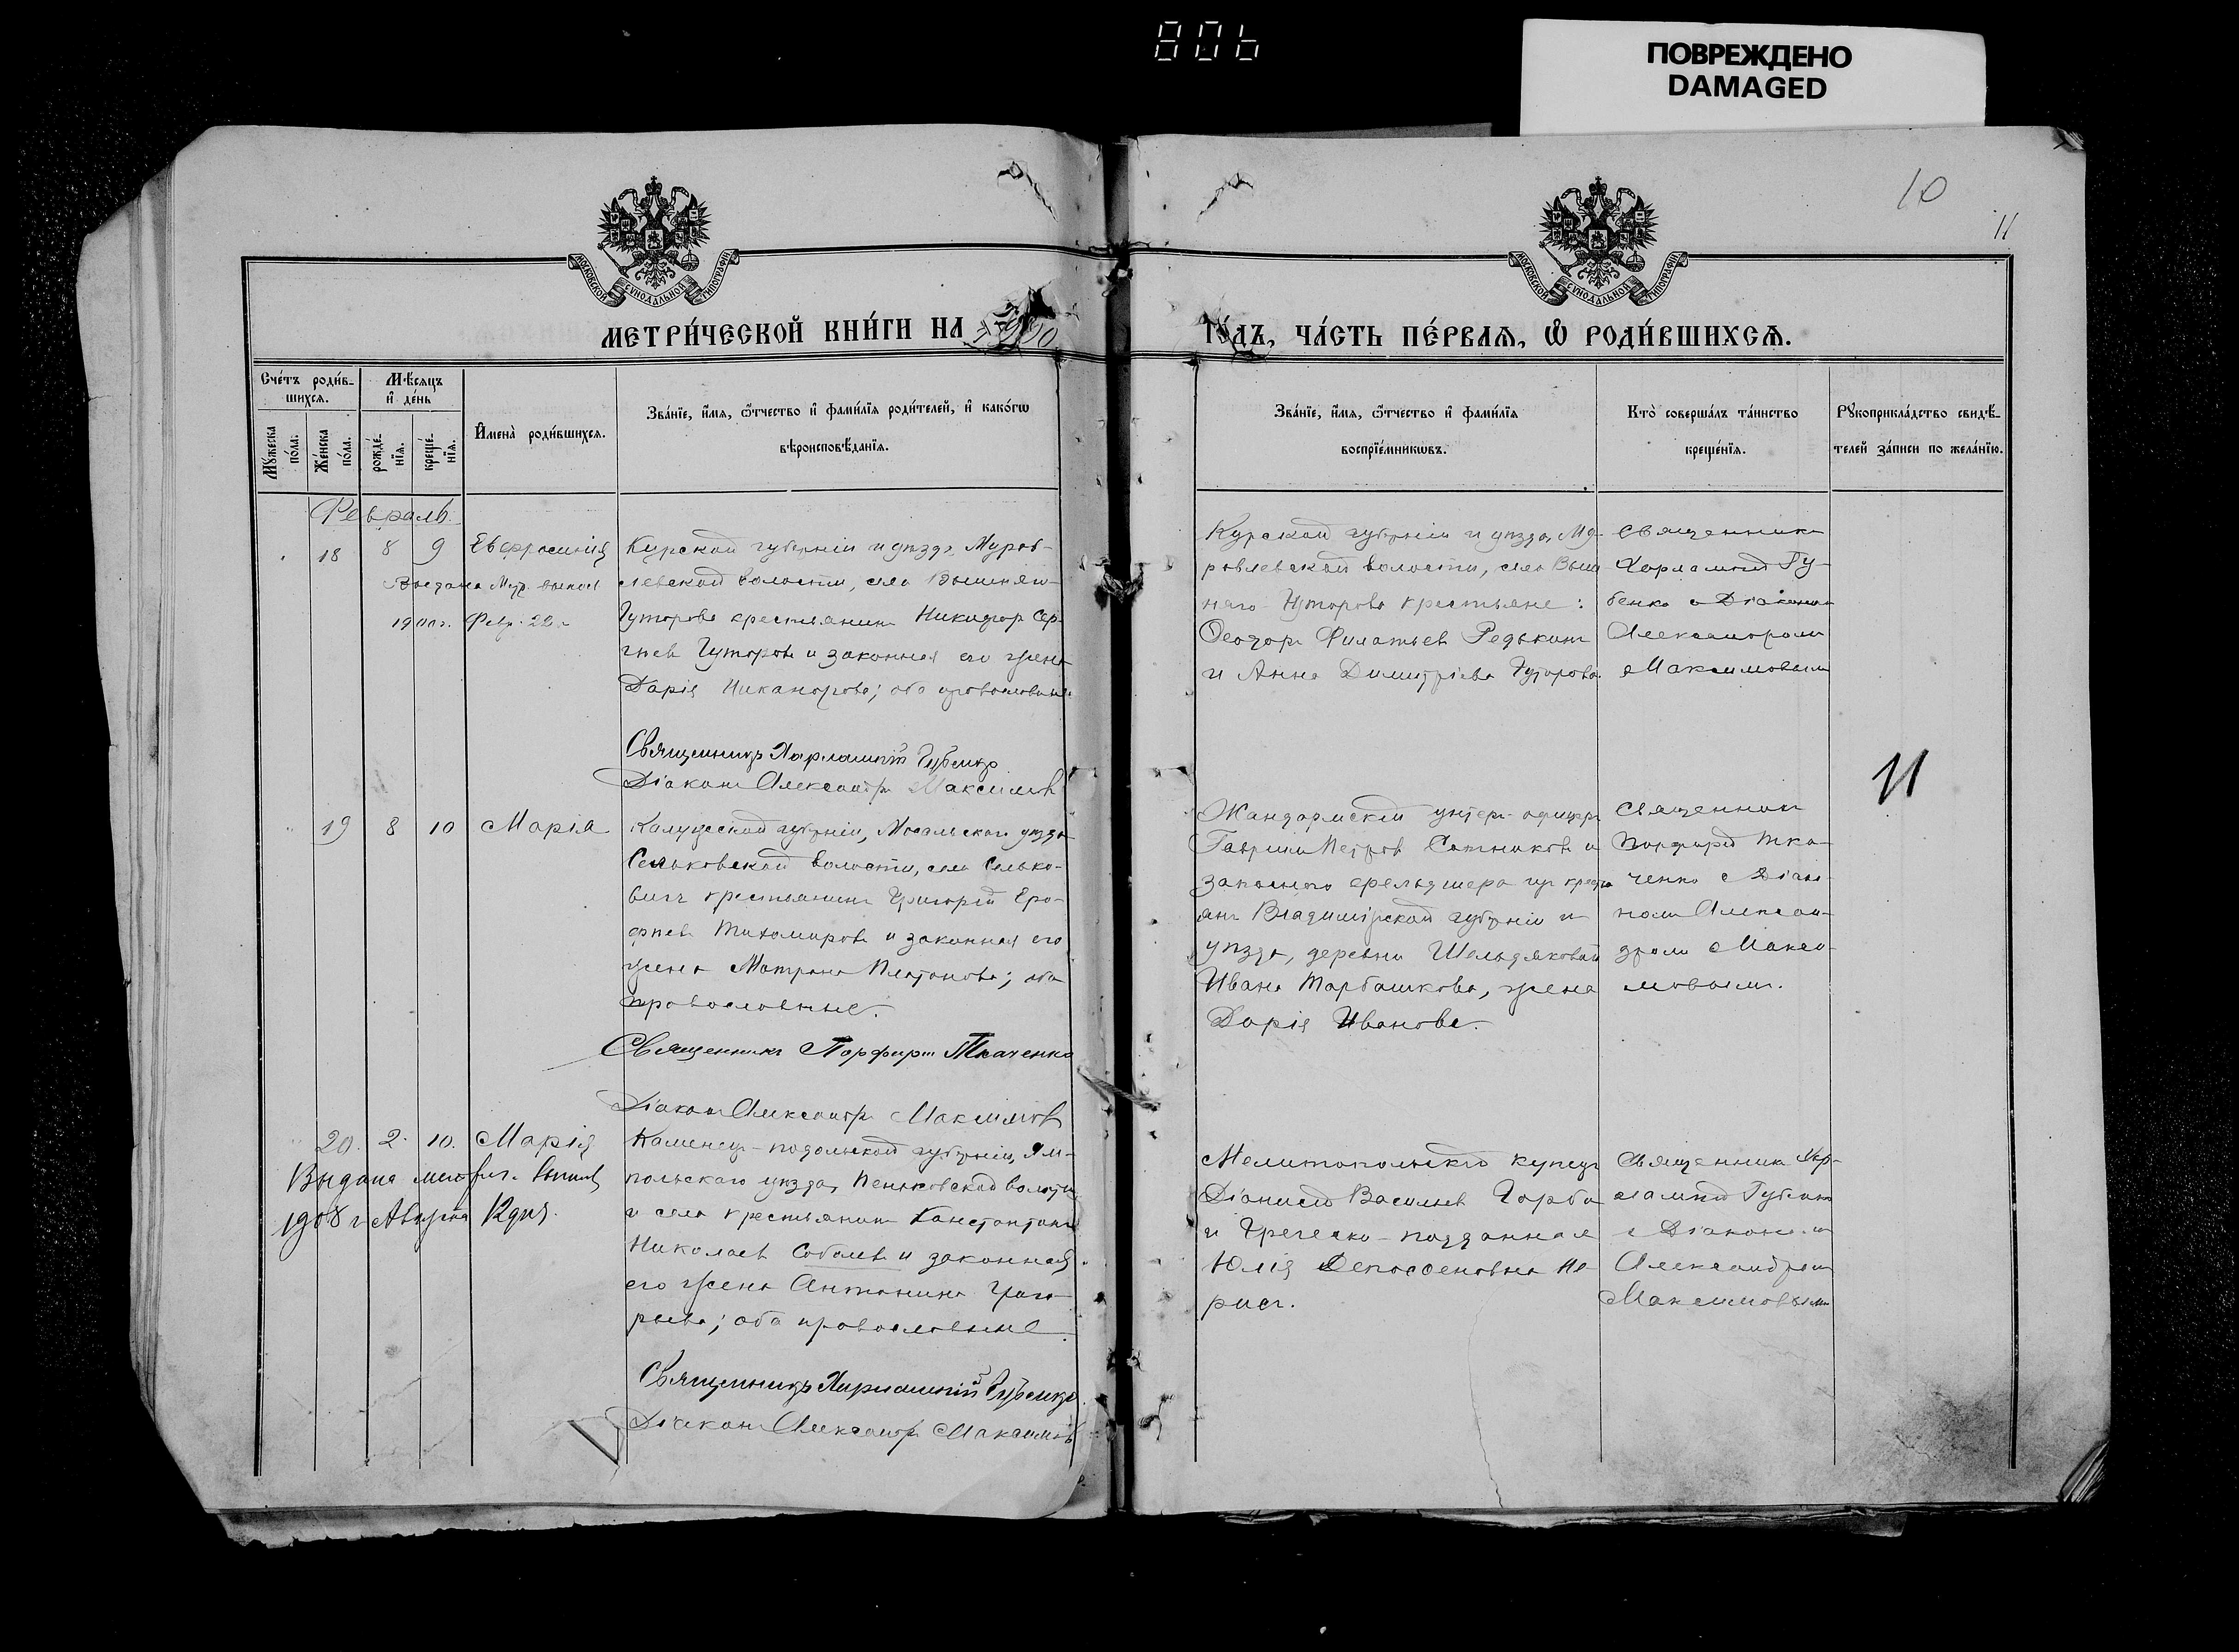 806
ПОВРЕЖДЕНО
DAMAGED
10
11
МОСКОВСКОЙ СѴНОДАЛЬНОЙ ТИПОГРАФІИ
МОСКОВСКОЙ СѴНОДАЛЬНОЙ ТИПОГРАФІИ
МЕТРИ́ЧЕСКОЙ КНИ́ГИ НА 1900
ГО́ДЪ, ЧА́СТЬ ПЕ́РВАЯ, Ѡ РОДИ́ВШИХСЯ.
Сче́тъ роди́в-
шихся.
Мѣсяцъ
и де́нь
Имена̀ роди́вшихся.
Зва́нїе, и́мя, ѻ́тчество и фами́лїя роди́телей, и како́гѡ
вѣроисповѣ́данїя.
Му́жеска
по́ла.
Же́нска
по́ла.
рожде́-
нїя.
креще́-
нїя.
Зва́нїе, и́мя, ѻ́тчество и фами́лїя
воспрїе́мникѡвъ.
Кто̀ соверша́лъ та́инство
креще́нїя.
Рꙋкоприкла́дство свидѣ́-
телей за́писи по жела́нїю.
Февраль.
18 8 9 Евфросинія
Курской губерніи и уѣзда, Муров-
левской волости, села Вышняго-
Гуторова крестьянинъ Никифор Сер-
гѣев Гуторовъ и законная его жена
Дарія Никанорова; оба православные.
Выдана Мет. выпись
1900 г. Февр. 22
Священникъ Харлампій Губенко
Діаконъ Александръ Максимовъ
Курской губерніи и уѣзда, Му-
ровлевской волости, села Выш-
няго Гуторова крестьяне:
Ѳеодоръ Филатьев Редькинъ
и Анна Димитріева Гуторова.
Священникъ
Харлампій Гу-
бенко с Діакономъ
Александромъ
Максимовымъ
19 8 10 Марія
Калужской губерніи, Мосальскаго уѣзда
Сельковской волости, села Селько-
вичъ крестьянинъ Григорій Еро-
фѣев Тихомировъ и законная его
жена Матрона Платонова; оба
православные.
Священникъ Порфирій Ткаченко
Діаконъ Александръ Максимовъ
Жандармскій унтеръ-офицеръ
Гавріилъ Петров Сотниковъ и
запаснаго фельдшера изъ кресть-
янъ Владимірской губерніи и
уѣзда, деревни Шельдяковой
Ивана Тарбашкова, жена
Дарія Иванова.
Священникъ
Порфирій Тка-
ченко с Діако-
номъ Алексан-
дромъ Макси-
мовымъ.
11
20. 2. 10. Марія
Выдана метрич. выпись
1908 г Августа 12 дня.
Каменец-подольской губерніи, Ям-
польскаго уѣзда, Пеньковской волости
и села крестьянинъ Константинъ
Николаев Соболев и законная
его жена Антонина Григо-
рьева; оба православные.
Священникъ Харлампій Губенко.
Діаконъ Александръ Максимовъ
Мелитопольскій купецъ
Діонисій Васильев Горба
и Греческо-подданная
Юлія
рисъ.
Священникъ Хар-
лампій Губенко
с Діакономъ
Александромъ
Максимовымъ